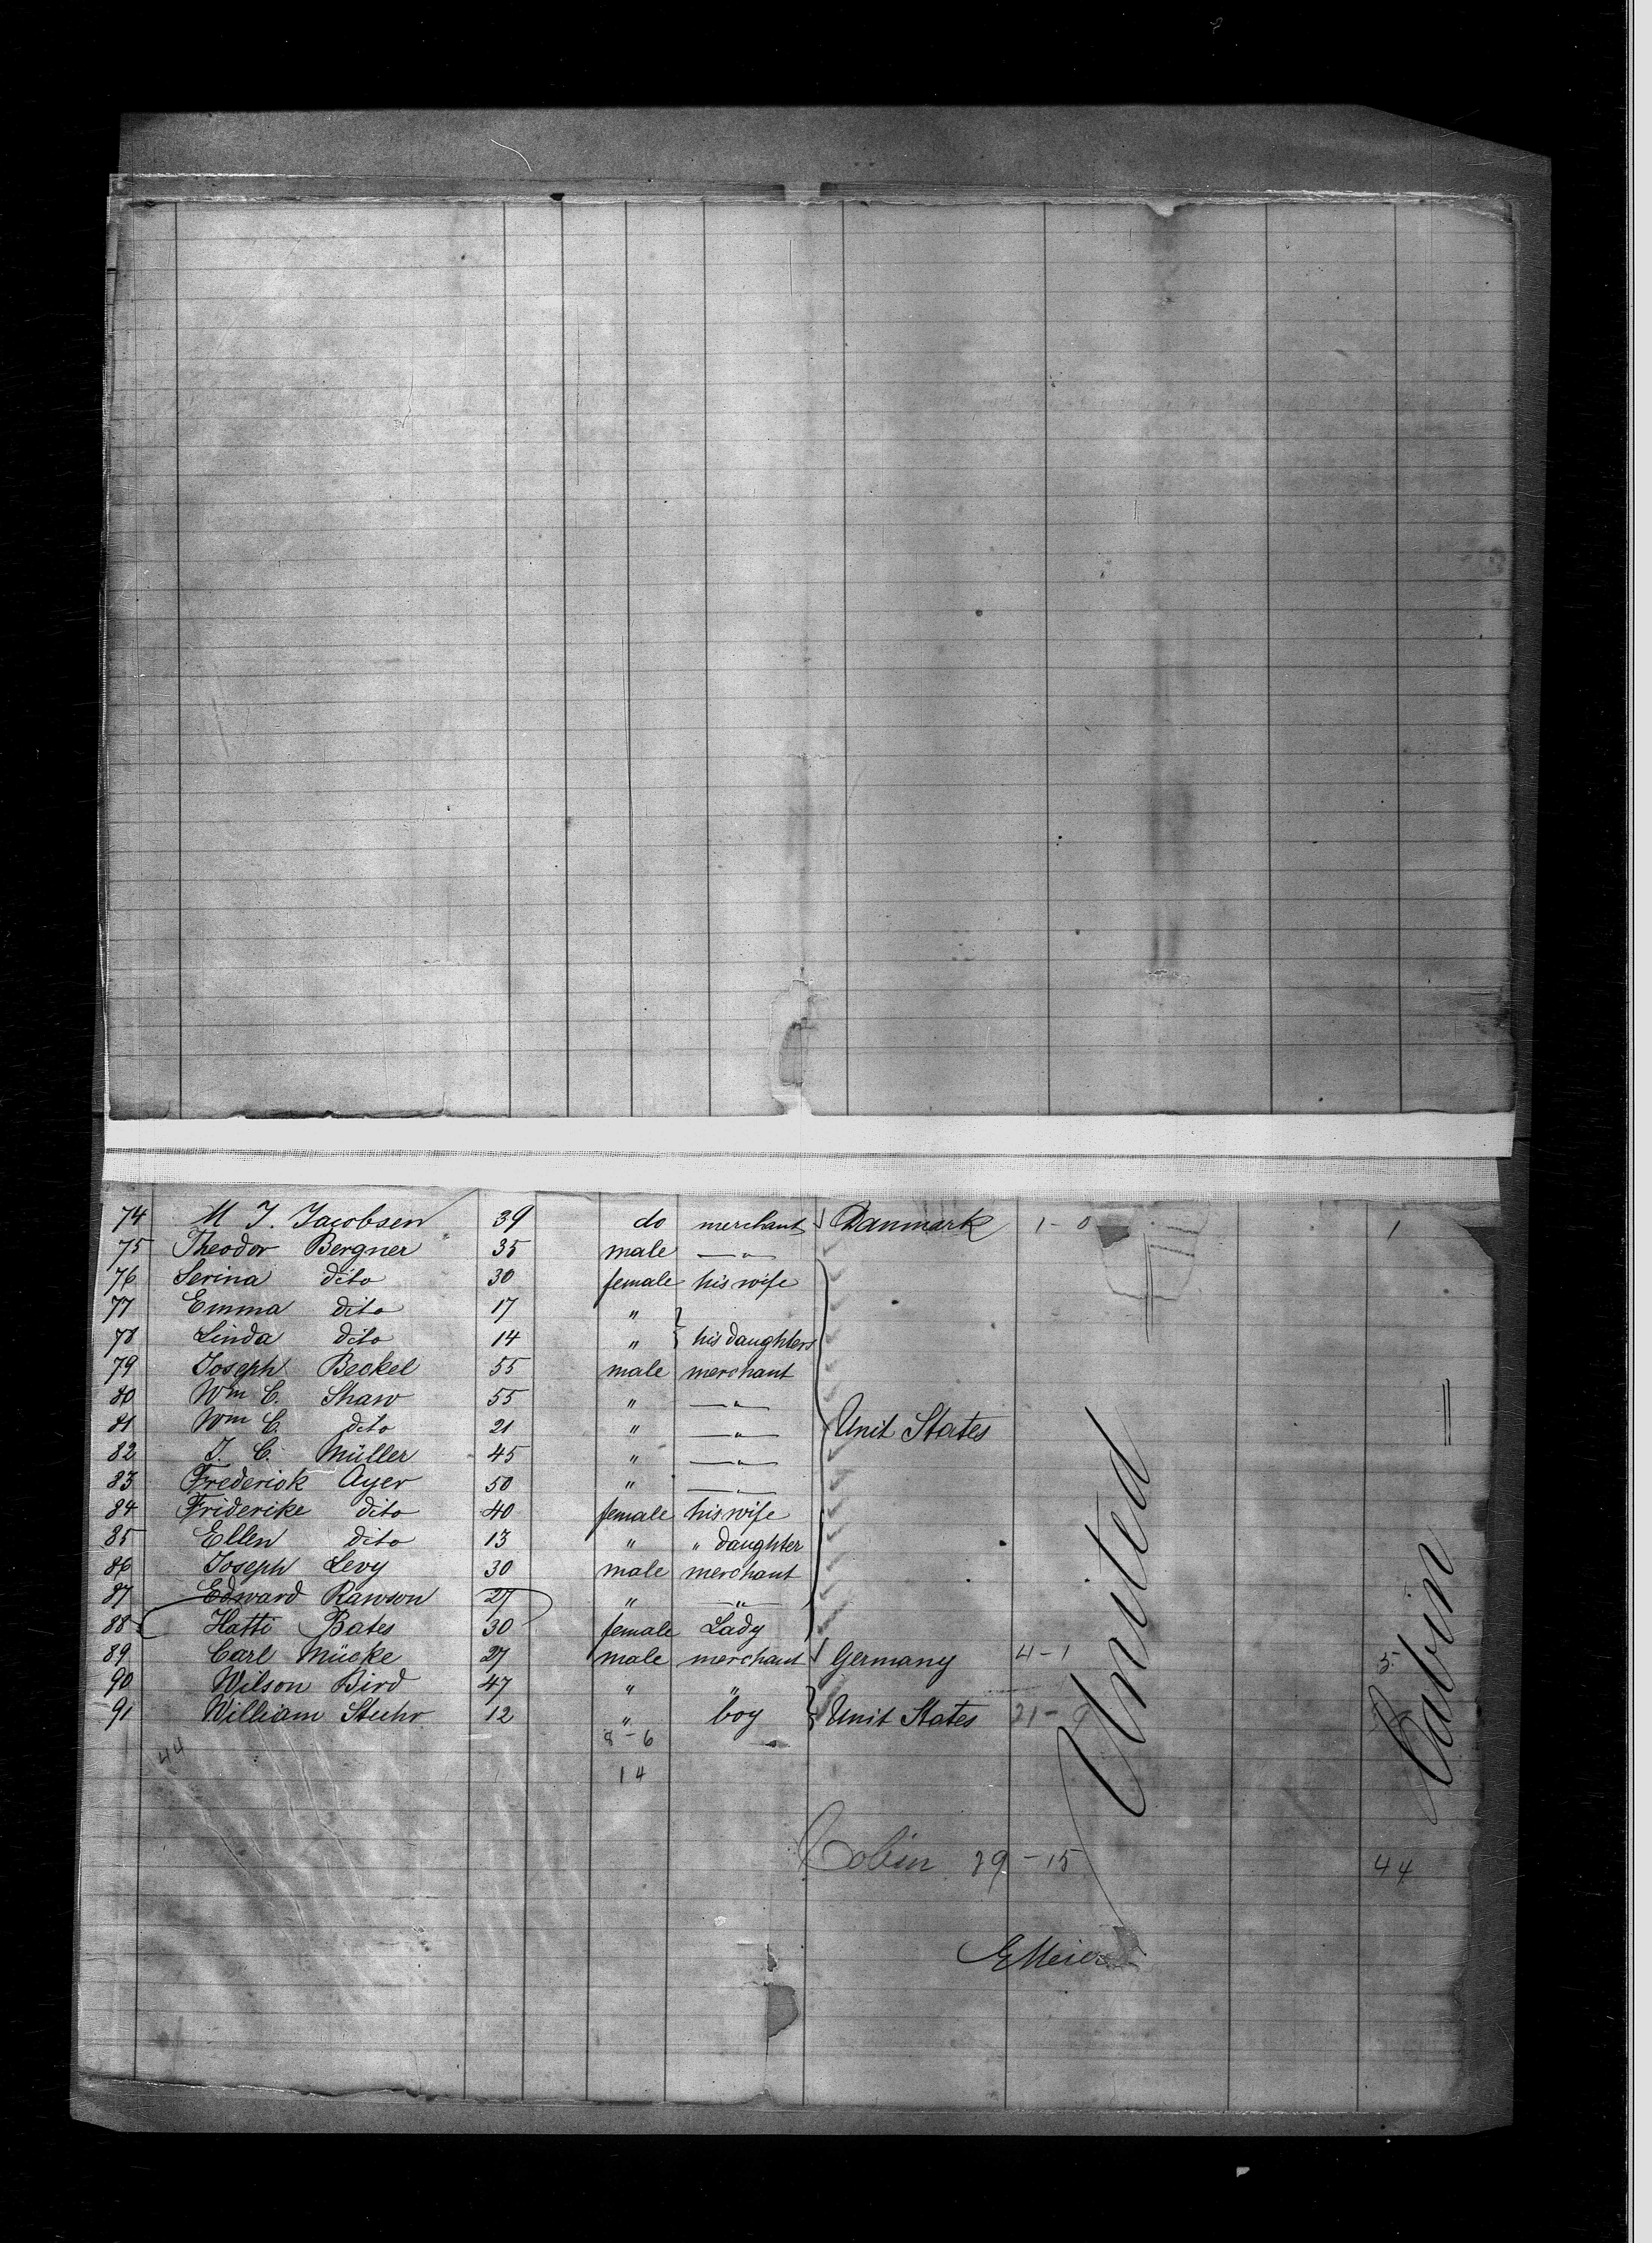 74 M J. Jacobsen 39 do merchant Danmark 1-0 1
75 Theodor Bergner 35 male —"—
76 Serina dito 30 female his wife
77 Emma dito 17 "
78 Linda dito 14 " } his daughters
79 Joseph Beckel 55 male merchant
80 Wm C. Shaw 55 " —"—
81 Wm C. dito 21 " —"— Unit States
82 J. C. Müller 45 " —"—
83 Frederick Ayer 50 " —"—
84 Friderike dito 40 female his wife
85 Ellen dito 13 " " daughter
86 Joseph Levy 30 male merchant
87 Edward Rawson 27 " —"—
88 Hatti Bates 30 female Lady
89 Carl Mücke 27 male merchant Germany 4-1 5
90 Wilson Bird 47 " "
91 William Stuhr 12 " boy } Unit States 21-9
8-6
44
14
United
Cabin
Cobin 29-15 44
EMeier